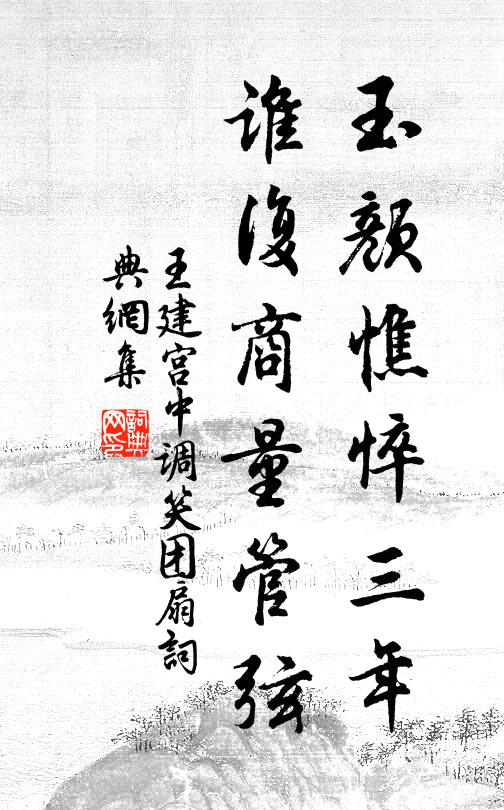 玉颜憔悴三年
谁復商量管弦
王建宫中调笑团扇詞
典網集
詞典网印